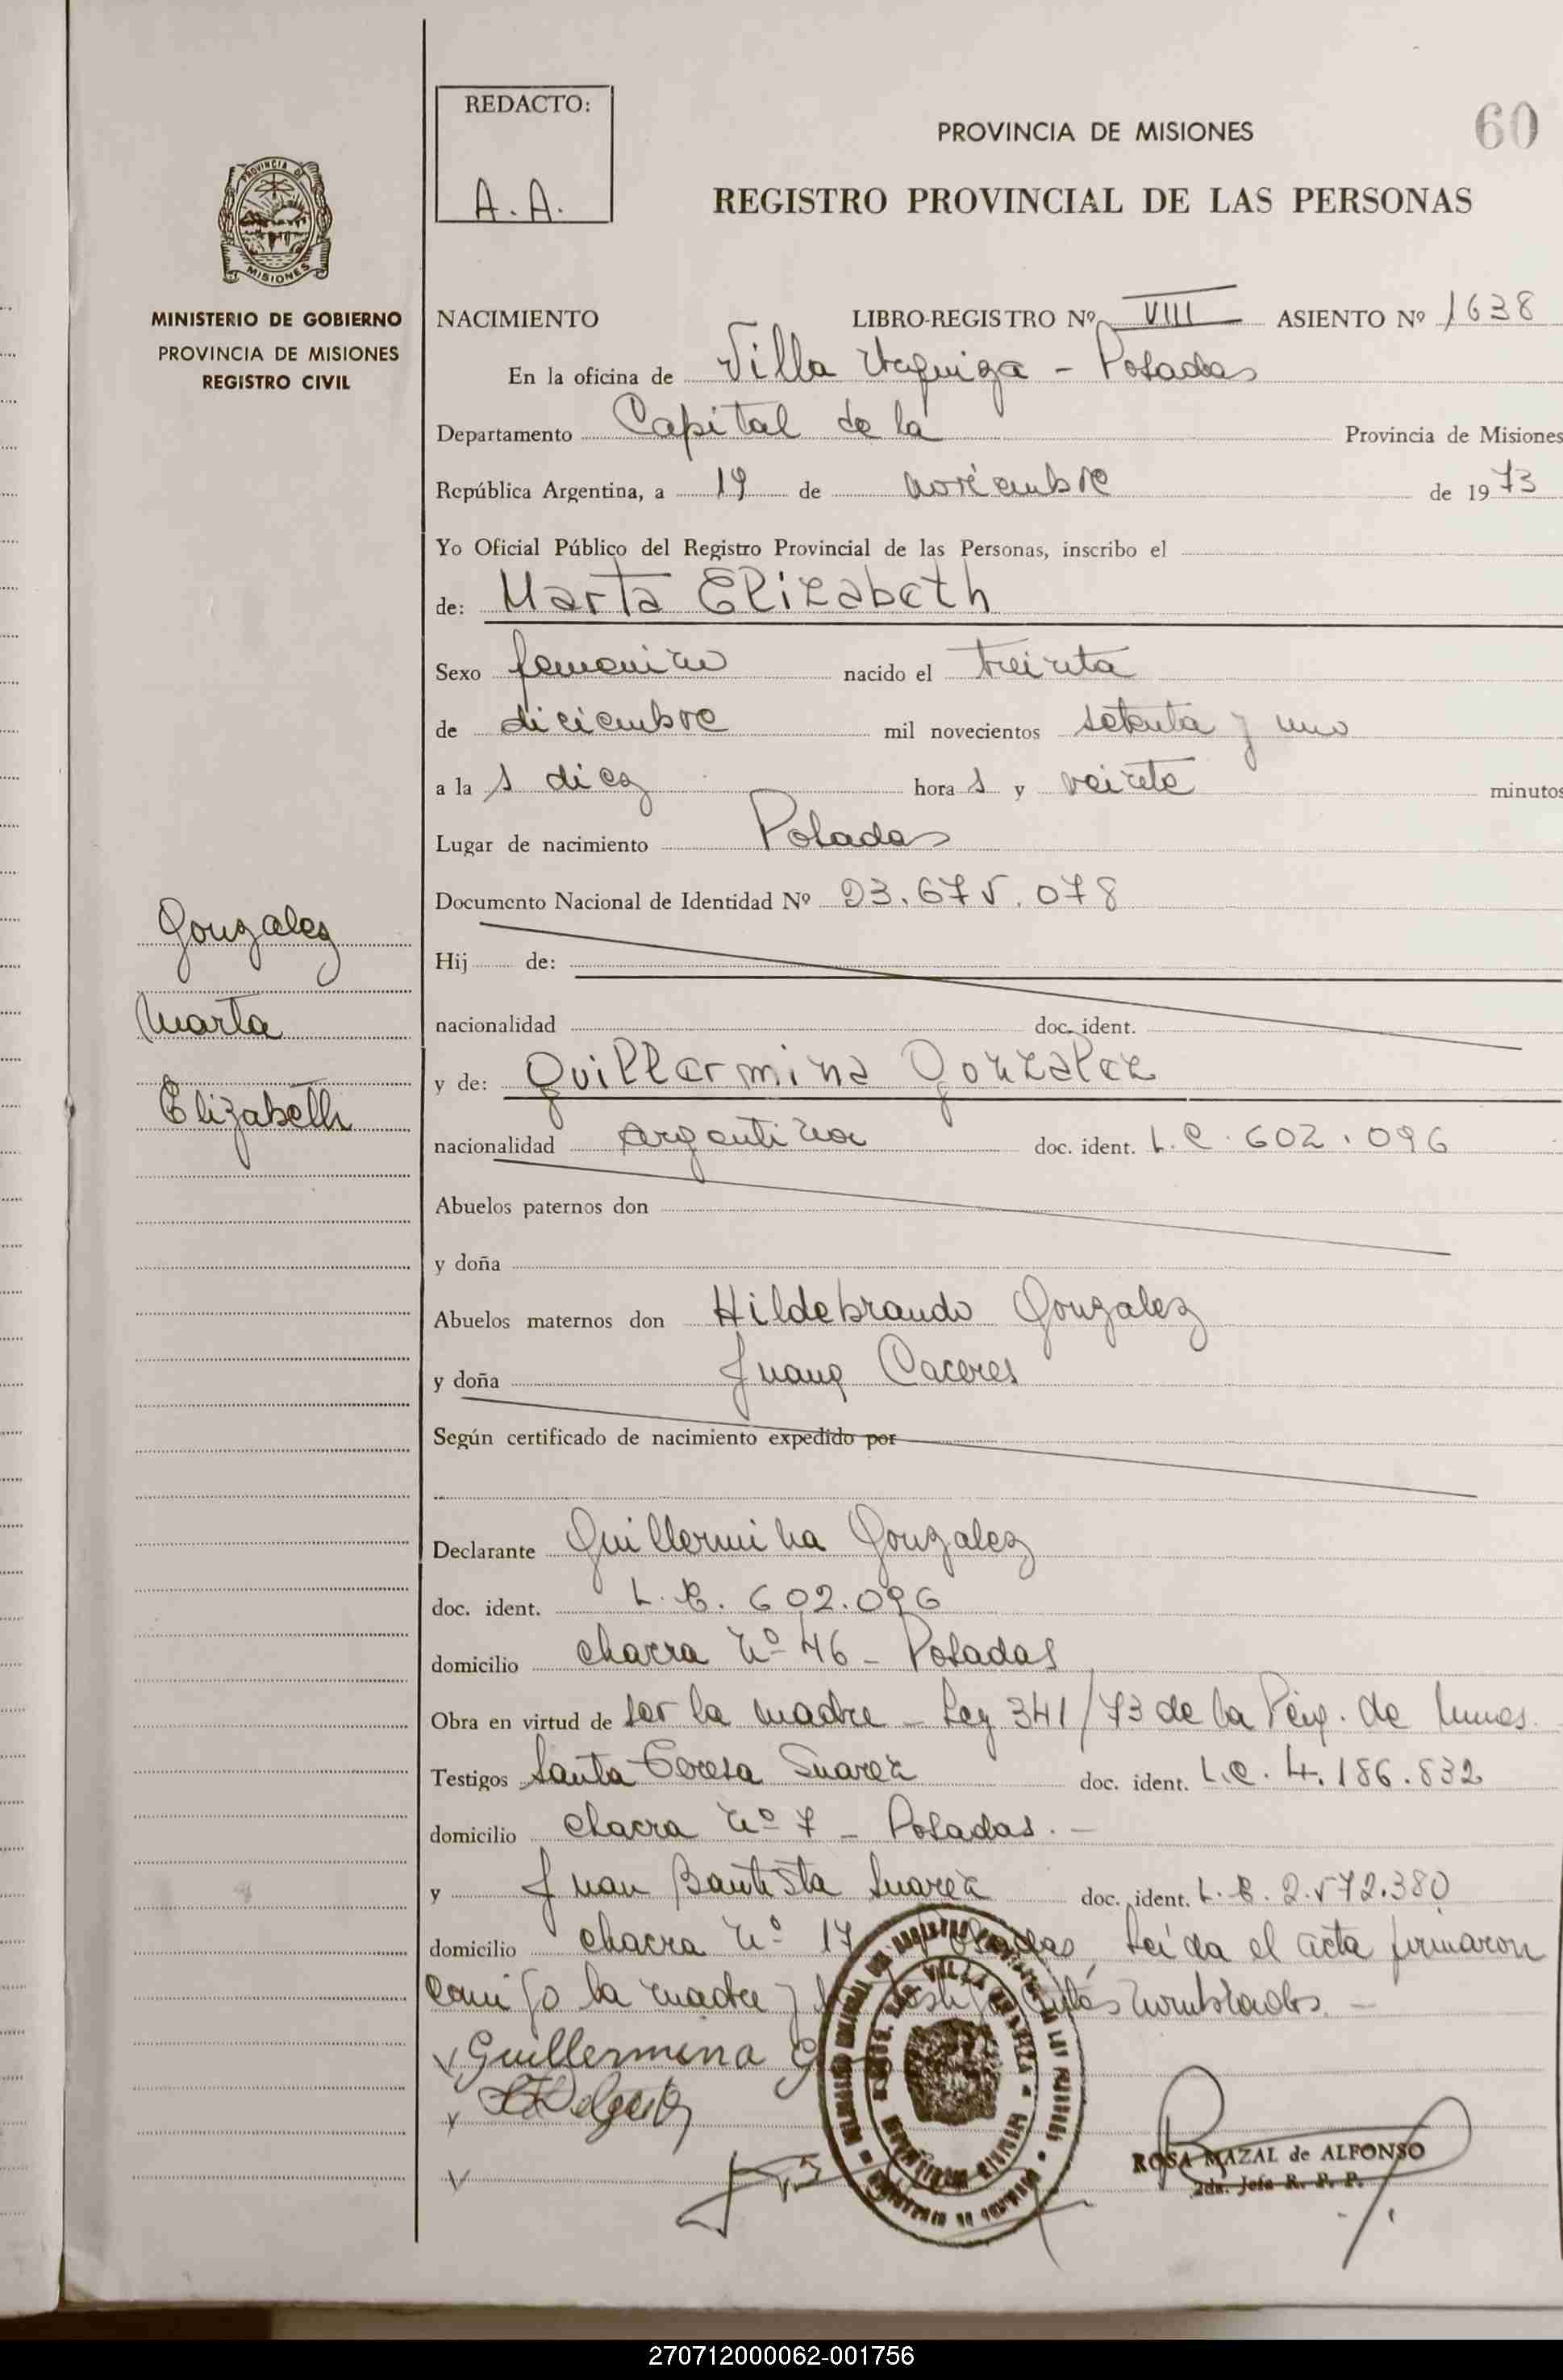 60
REDACTO:
A.A.
PROVINCIA DE MISIONES
REGISTRO PROVINCIAL DE LAS PERSONAS
PROVINCIA DE
MISIONES
MINISTERIO DE GOBIERNO
PROVINCIA DE MISIONES
REGISTRO CIVIL
NACIMIENTO LIBRO-REGISTRO Nº VIII ASIENTO Nº 1638
En la oficina de Villa Urquiza - Posadas
Departamento Capital de la Provincia de Misiones
República Argentina, a 19 de noviembre de 1973
Yo Oficial Público del Registro Provincial de las Personas, inscribo el
de: Marta Elizabeth
Sexo femenino nacido el treinta
de diciembre mil novecientos setenta y uno
a la s diez hora s y veinte minutos
Lugar de nacimiento Posadas
Documento Nacional de Identidad Nº 23.675.078
Gonzalez
Marta
Elizabeth
Hij de:
nacionalidad doc. ident.
y de: Guillermina Gonzalez
nacionalidad Argentina doc. ident. L.C. 602.096
Abuelos paternos don
y doña
Abuelos maternos don Hildebrando Gonzalez
y doña Juana Caceres
Según certificado de nacimiento expedido por
Declarante Guillermina Gonzalez
doc. ident. L.C. 602.096
domicilio chacra Nº 46 - Posadas
Obra en virtud de ser la madre - Ley 341/73 de la de
Testigos Santa Teresa Suarez doc. ident. L.C. 4.186.832
domicilio chacra Nº 7 - Posadas. -
y Juan Bautista Suarez doc. ident. L.E. 2.572.380
domicilio chacra Nº 17 Posadas, Leída el acta firmaron
conmigo la madre y nombrados. -
Guillermina G
ROSA MAZAL de ALFONSO
2da. Jefa R. P. P.
270712000062-001756